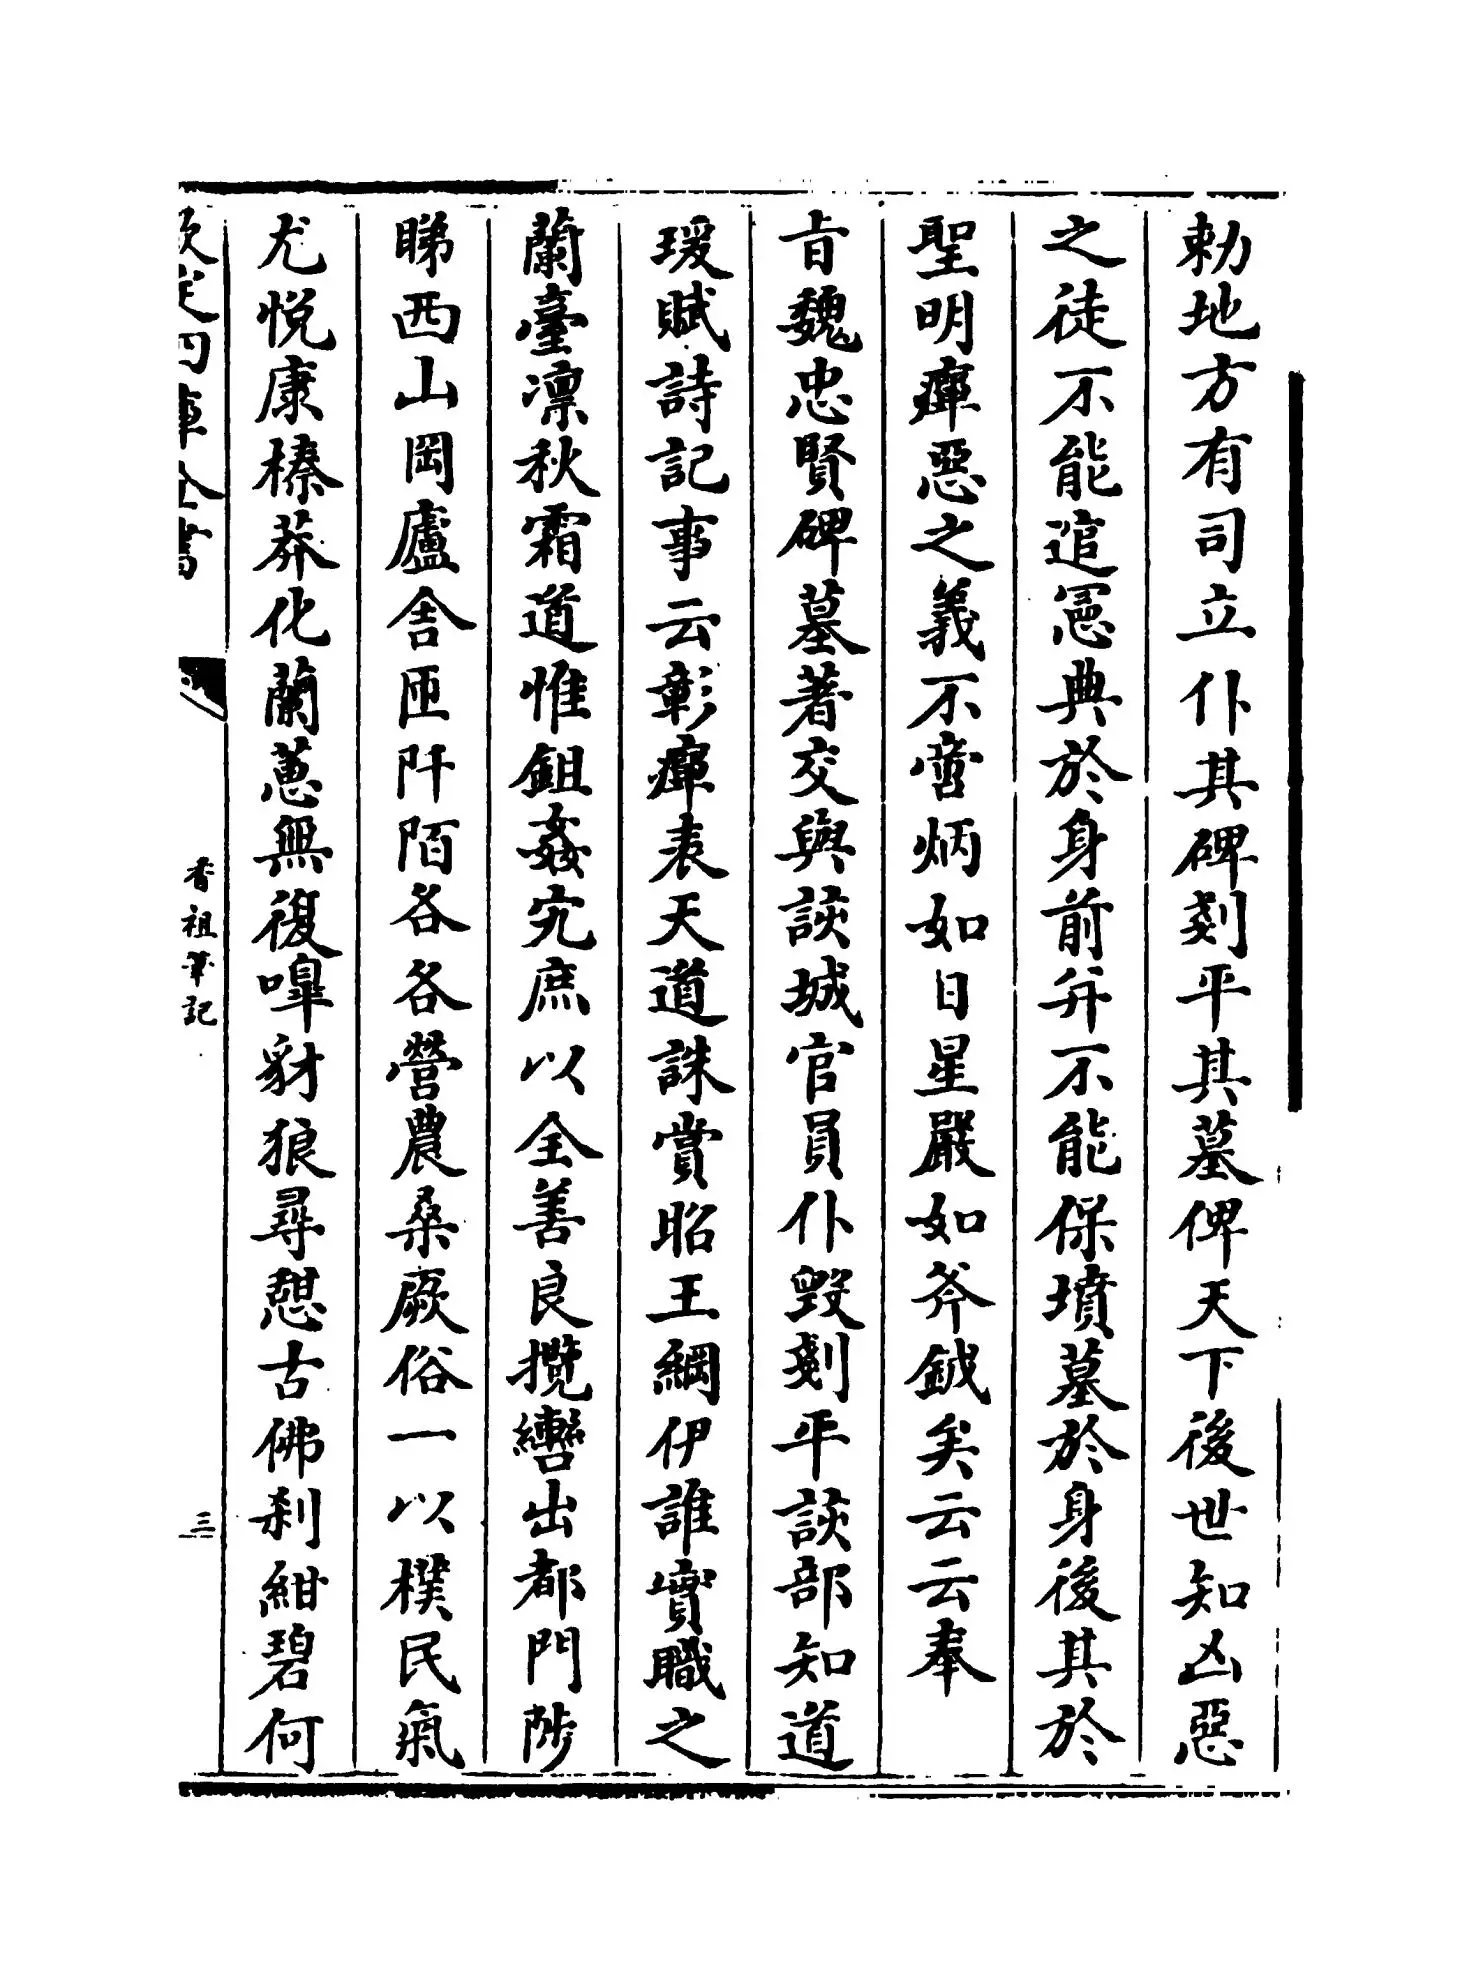 勅地方有司立仆其碑剗平其墓俾天下後世知凶惡
之徒不能逭憲典於身前并不能保墳墓於身後其於
聖明癉惡之義不啻炳如日星嚴如斧鉞矣云云奉
旨魏忠賢碑墓著交與該城官員仆毀剗平該部知道
瑗賦詩記事云彰癉表天道誅賞昭王綱伊誰實職之
蘭臺凛秋霜道惟鉏姦宄庶以全善良攬轡出都門陟
睇西山岡廬舍匝阡陌各各營農桑厥俗一以樸民氣
尤悅康榛莽化蘭蕙無復嘷豺狼尋憩古佛刹紺碧何
欽定四庫全書
香祖筆記
三